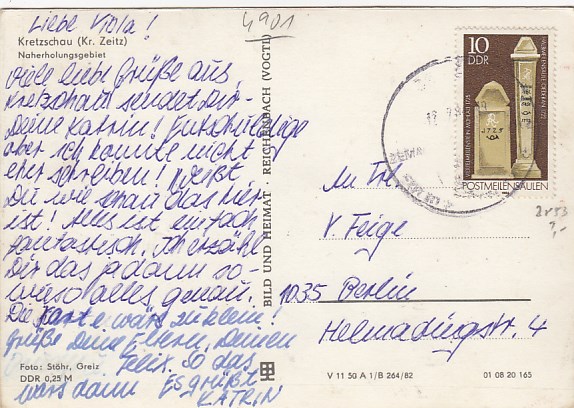 Liebe Viola!
4901
Kretzschau (Kr. Zeitz)
Naherholungsgebiet
Viele liebe Grüße aus
Kretzschau sendet Dir
Deine Katrin! Entschuldige
aber ich konnte nicht
eher schreiben! Weißt
Du wie schau das hier
ist! Alles ist einfach
fantastisch. Ich erzähle
Dir das ja dann so-
wieso alles genau.
Die Karte wär zu klein!
Grüße Deine Eltern, Deinen
Felix. So das
wärs dann Es grüßt
KATRIN
Foto: Stöhr, Greiz
DDR 0,25 M
BILD UND HEIMAT · REICHENBACH (VOGTL)
10
DDR
POSTMEILENSÄULEN
V. Feige
1035 Berlin
Helmadingstr. 4
V 11 50 A 1/B 264/82
01 08 20 165